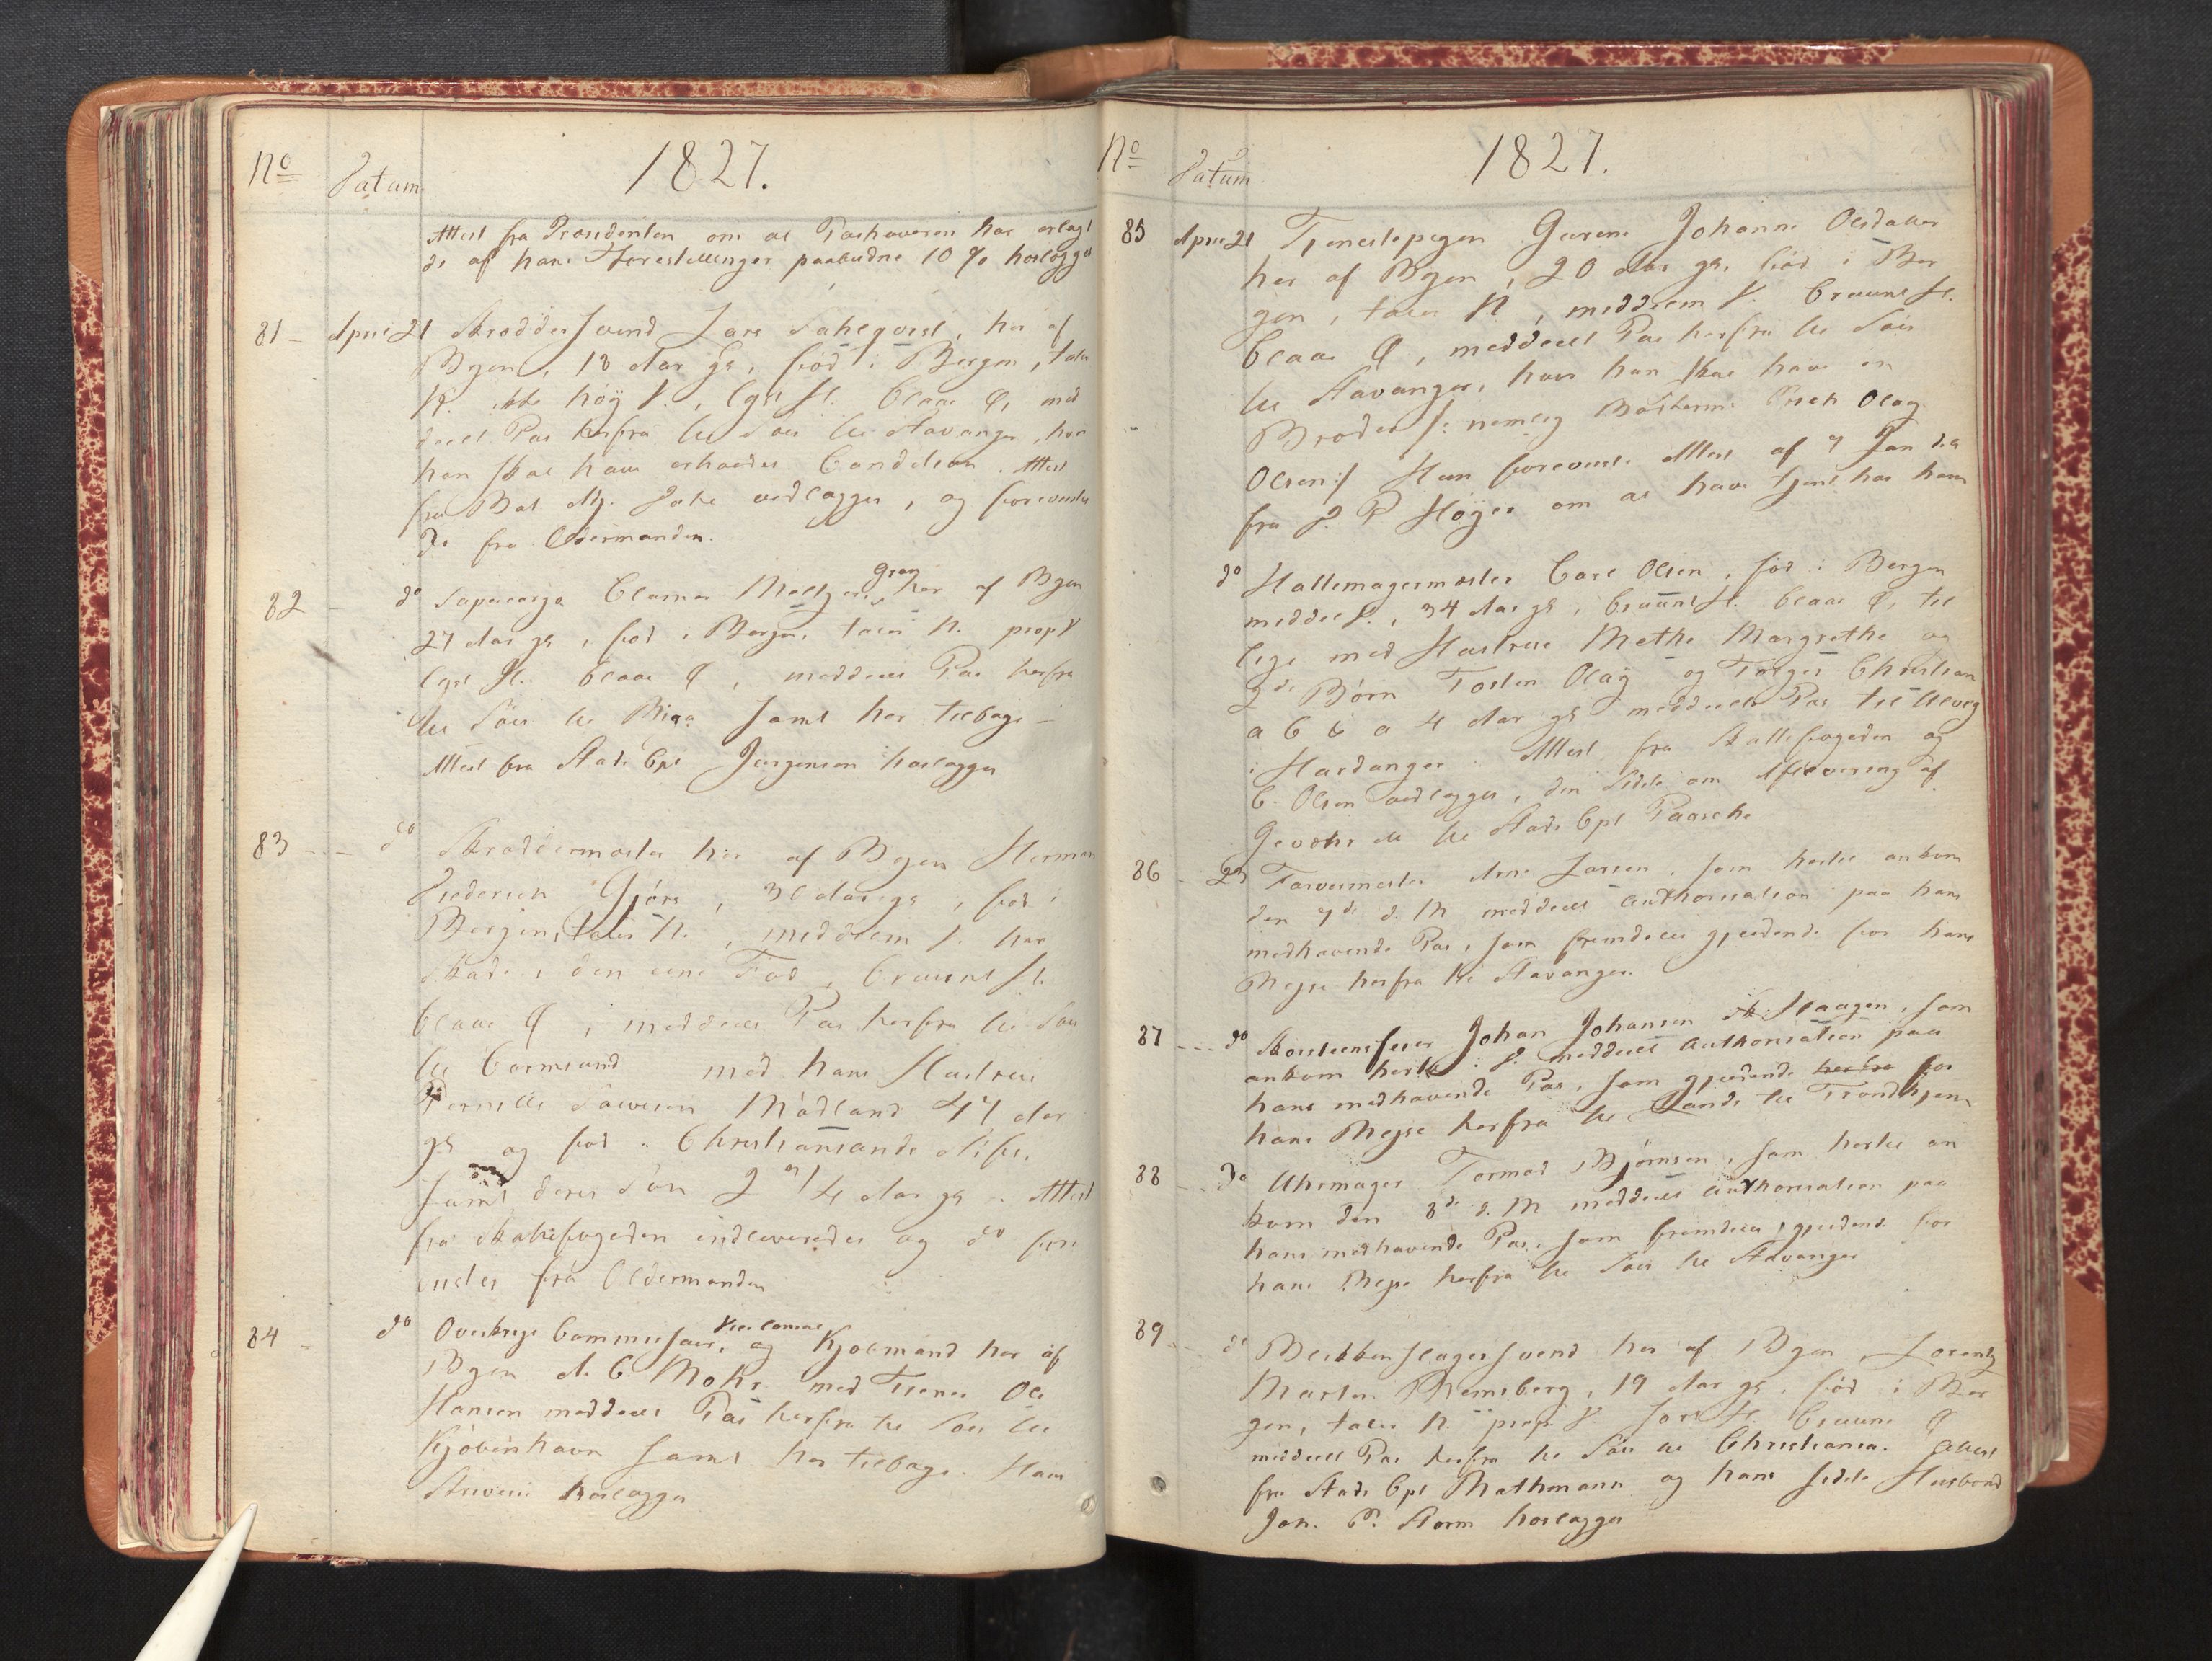 No Datum 1827.
Attest fra Præsidenten om at Pashaveren har erlagt
de af hans Forestillinger paabudne 10 % hoslægges
81 - April 21 Skrædersvend Lars Dahlqvist, her af
Byen, 18 Aar gl, fød i Bergen, taler
N. ikke høy V., lyst H. blaae Ø, med
deelt Pas herfra til Søes til Stavanger, hvor
han skal have erholdt Condition. Attest
fra Bat. vedlægges, og foreviistes
do fra Oldermanden.
82 do Supercargo Clamer Meltzer Gran her af Byen
27 Aar gl, fød i Bergen, taler N. prop V
lyst H. blaae Ø, meddeelt Pas herfra
til Søes til Riga samt her tilbage -
Attest fra Stads Cpt Jürgensen hoslægges
83 - - - do Skrædermester her af Byen Herman
Diederich Gjørs, 30 Aar gl, fød i
Bergen, taler N., middelm V. har
Skade i den eene Fod, bruunt H.
blaae Ø, meddeelt Pas herfra til Søes
til Carmsund med hans Hustrue
Pernille Madland 47 Aar
gl og fød i Christiansands Stift.
samt deres Søn 2 3/4 Aar gl. Attest
fra Skattefogeden indleveredes og do fore
viistes fra Oldermanden
84 - do Overkrigs Commissair, og Kjøbmand her af
Byen A. C. Mohr med Tiener Ole
Hansen meddeelt Pas herfra til Søes til
Kjøbenhavn samt her tilbage. Hans
Skrivelse hoslægges
No Datum 1827.
85 April 21 Tjenestepigen Gurine Johanne Olsdatter
her af Byen, 20 Aar gl. fød i Ber
gen, taler N, middelm V. bruunt H.
blaae Ø, meddeelt Pas herfra til Søes
til Stavanger, hvor hun skal have en
Broder /: nemlig Olag
Olsen :/ Hun foreviiste Attest af 7 Jan d. A
fra J. P Höyer om at have tjent hos ham
do Hattemagermester Carl Olsen, fød i Bergen
middel V., 34 Aar gl, bruunt H. blaae Ø, til
lige med Hustrue Methe Margrethe og
2de Børn Tosten Olag og Torger Christian
a 6 & a 4 Aar gl meddeelt Pas til Ulvig
i Hardanger. Attest fra Skattefogeden og
C. Olsen vedlægges, den sidste om Aflevering af
Gevæhr til Stads Cpt Paasche
86 - 23 Farvermester Arne Larsen, som hertil ankom
den 7de d. M meddeelt Authorisation paa hans
medhavende Pas, som fremdeles gjeldende for hans
Rejse herfra til Stavanger.
87 - - - do Skorsteensfeier Johan Johansen Haagen, som
ankom hertil i F. meddeelt Authorisation paa
hans medhavende Pas, som gjeldende herfra for
hans Rejse herfra til Lands til Trondhjem
88 - - do Uhrmager Tormod Bjørnsen, som hertil an
kom den 8de d. M meddeelt Authorisation paa
hans medhavende Pas, som fremdeles gjeldende for
hans Rejse herfra til Søes til Stavanger
89 - - - do Blikkenslagersvend her af Byen, Lorentz
Martin Remsberg, 19 Aar gl, fød i Ber
gen, taler N. prop. V. sort H. bruune Ø
meddeelt Pas herfra til Søes til Christiania. Attest
fra Stads Cpt Rathmann og hans sidste Huusbond
Joh. P. Storm hoslægges